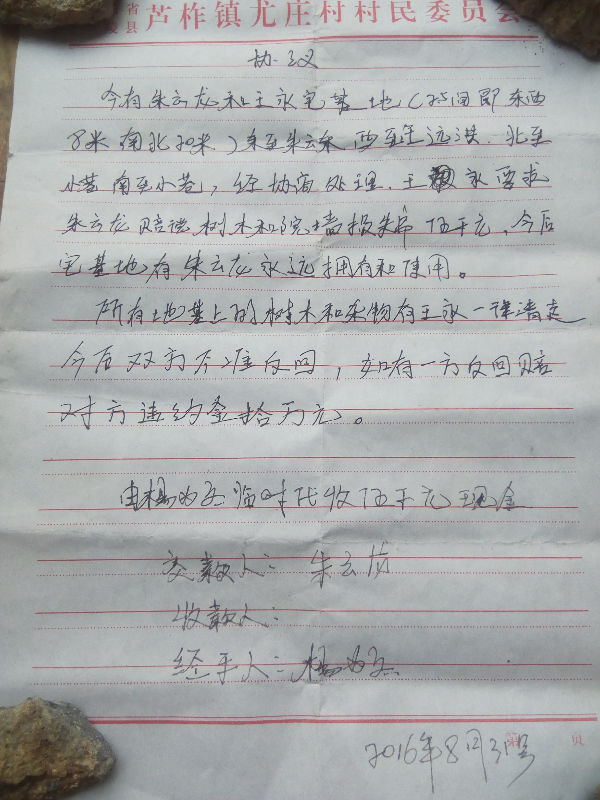 省
县
芦柞镇尤庄村村民委员会
协议
今有朱云龙和王永宅基地(2间即东西
8米南北20米)东至朱云东西至王远洪.北至
小巷南至小巷,经协商处理.王永要求
朱云龙赔偿树木和院墙损失币伍千元,今后
宅基地有朱云龙永远拥有和使用。
所有地基上的树木和杂物有王永一律清走
今后双方不准反回,如有一方反回赔
对方违约金拾万元。
由杨为临时代收伍千元现金
交款人:朱云龙
收款人:
经手人:杨为
第 页
2016年8月31号